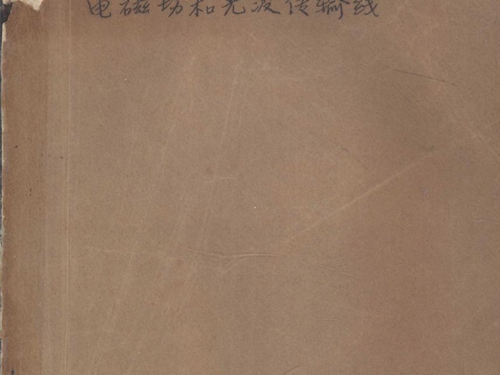 电磁场和光波传输线